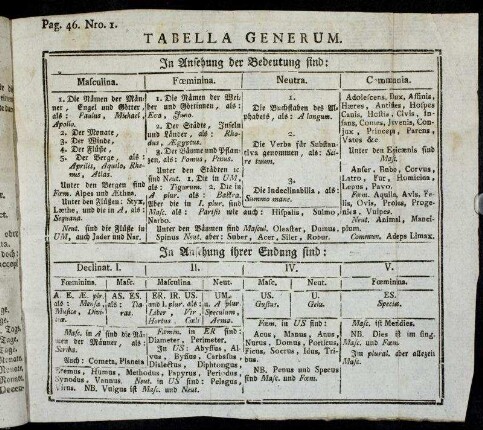 Pag. 46. Nro. 1.
TABELLA GENERUM.
In Ansehung der Bedeutung sind:
Masculina.
1. Die Nämen der Män-
ner, Engel und Götter,
als: Paulus, Michael,
Apollo.
2. Der Monate,
3. Der Winde,
4. Der Flüße,
5. Der Berge, als:
Aprilis, Aquilo, Rhe-
nus, Atlas.
Unter den Bergen sind
Fœm. Alpes und Æthna.
Unter den Flüßen: Styx,
Læthe, und die in A, als:
Sequana.
Neut. sind die Flüße in
UM, auch Jader und Nar.
Fœminina.
1. Die Nämen der Wei-
ber und Göttinnen, als:
Eva, Juno.
2. Der Städte, Inseln
und Länder, als: Rho-
dus, Ægyptus.
3. Der Bäume und Pflan-
zen, als: Pomus, Pinus.
Unter den Städten ic
sind Neut. 1. Die in UM,
als: Figurum. 2. Die in
A plur. als: Bactra.
Aber die in I. plur. sind
Masc. als: Parisii wie auch: Hispalis, Sulmo,
Narbo.
Unter den Bäumen sind Mascul. Oleaster, Dumus,
Spinus Neut. aber: Suber, Acer, Siler, Robur.
Neutra.
1.
Die Buchstaben des Al-
phabets, als: A longum.
2.
Die Verba für Substan-
tiva genommen, als: Sci-
re tuum.
3.
Die Indeclinabilia, als:
Summo mane.
Communia.
Adolescens, Bos, Affinis,
Hæres, Antistes, Hospes
Canis, Hostis, Civis, In-
fans, Comes, Juvenis, Con-
jux, Princeps, Parens,
Vates &c
Unter den Epicænis sind
Masc.
Anser, Bubo, Corvus,
Latro, Fur, Homicida
Lepus, Pavo.
Fœm. Aquila, Avis, Fe-
lis, Ovis, Proles, Proge-
nies, Vulpes.
Neut. Animal, Manci-
pium.
Commun. Adeps Limax.
In Ansehung ihrer Endung sind:
Declinat. I.
Fœminina.
A. E. Æ. plr.
als: Mensa,
Musice, Divi-
tiæ.
Masc.
AS. ES.
als: Tia-
ras.
Masc. in A sind die Nä-
men der Männer, als:
Scriba.
II.
Masc.
ER. IR. US.
und I. plur. als:
Liber, Vir,
Hortus, Cœli
Neut.
UM.
u. A plur.
Speculum,
Arma.
Fœm. in ER sind:
Diameter, Perimeter.
In US: Abyssus, Al-
vus, Byssus, Carbasus
Dialectus, Diphtongus,
Auch: Cometa, Planeta
Eremus, Humus, Methodus, Papyrus, Periodus
Synodus, Vannus. Neut. in US sind: Pelagus,
Virus. NB. Vulgus ist Masc. und Neut.
IV.
Masc.
US.
Gustus.
Neut.
U.
Gelu.
Fœm. in US sind:
Acus, Manus, Anus,
Nurus, Domus, Porticus,
Ficus, Socrus, Idus, Tri-
bus.
NB. Penus und Specus
sind Masc. und Fœm.
V.
Fœminina.
ES.
Species.
Masc. ist Meridies.
NB. Dies ist im sing.
Masc. und Fœm.
Im plural. aber allezeit
Masc.